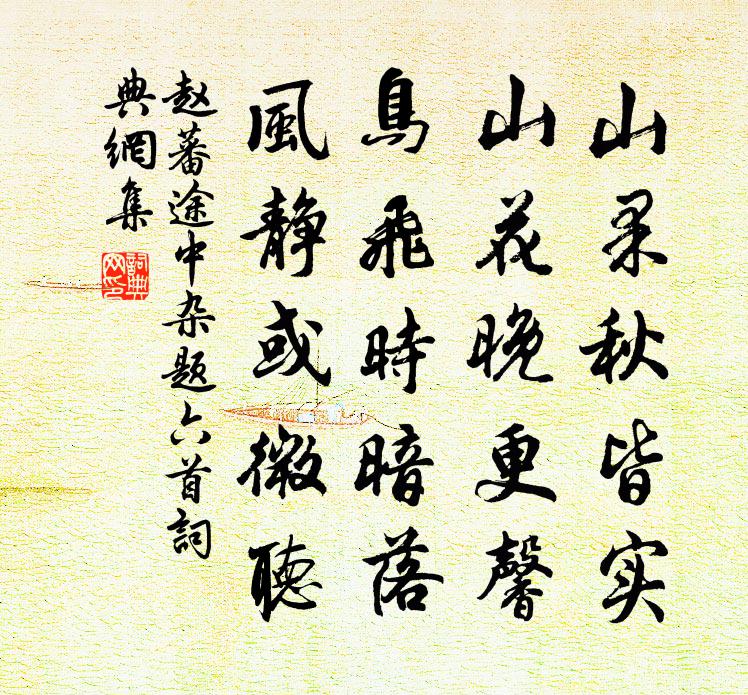 山果秋皆实
山花晚更馨
鳥飛時暗落
風静或微聽
赵蕃途中杂题六首詞
典網集
詞典
网印